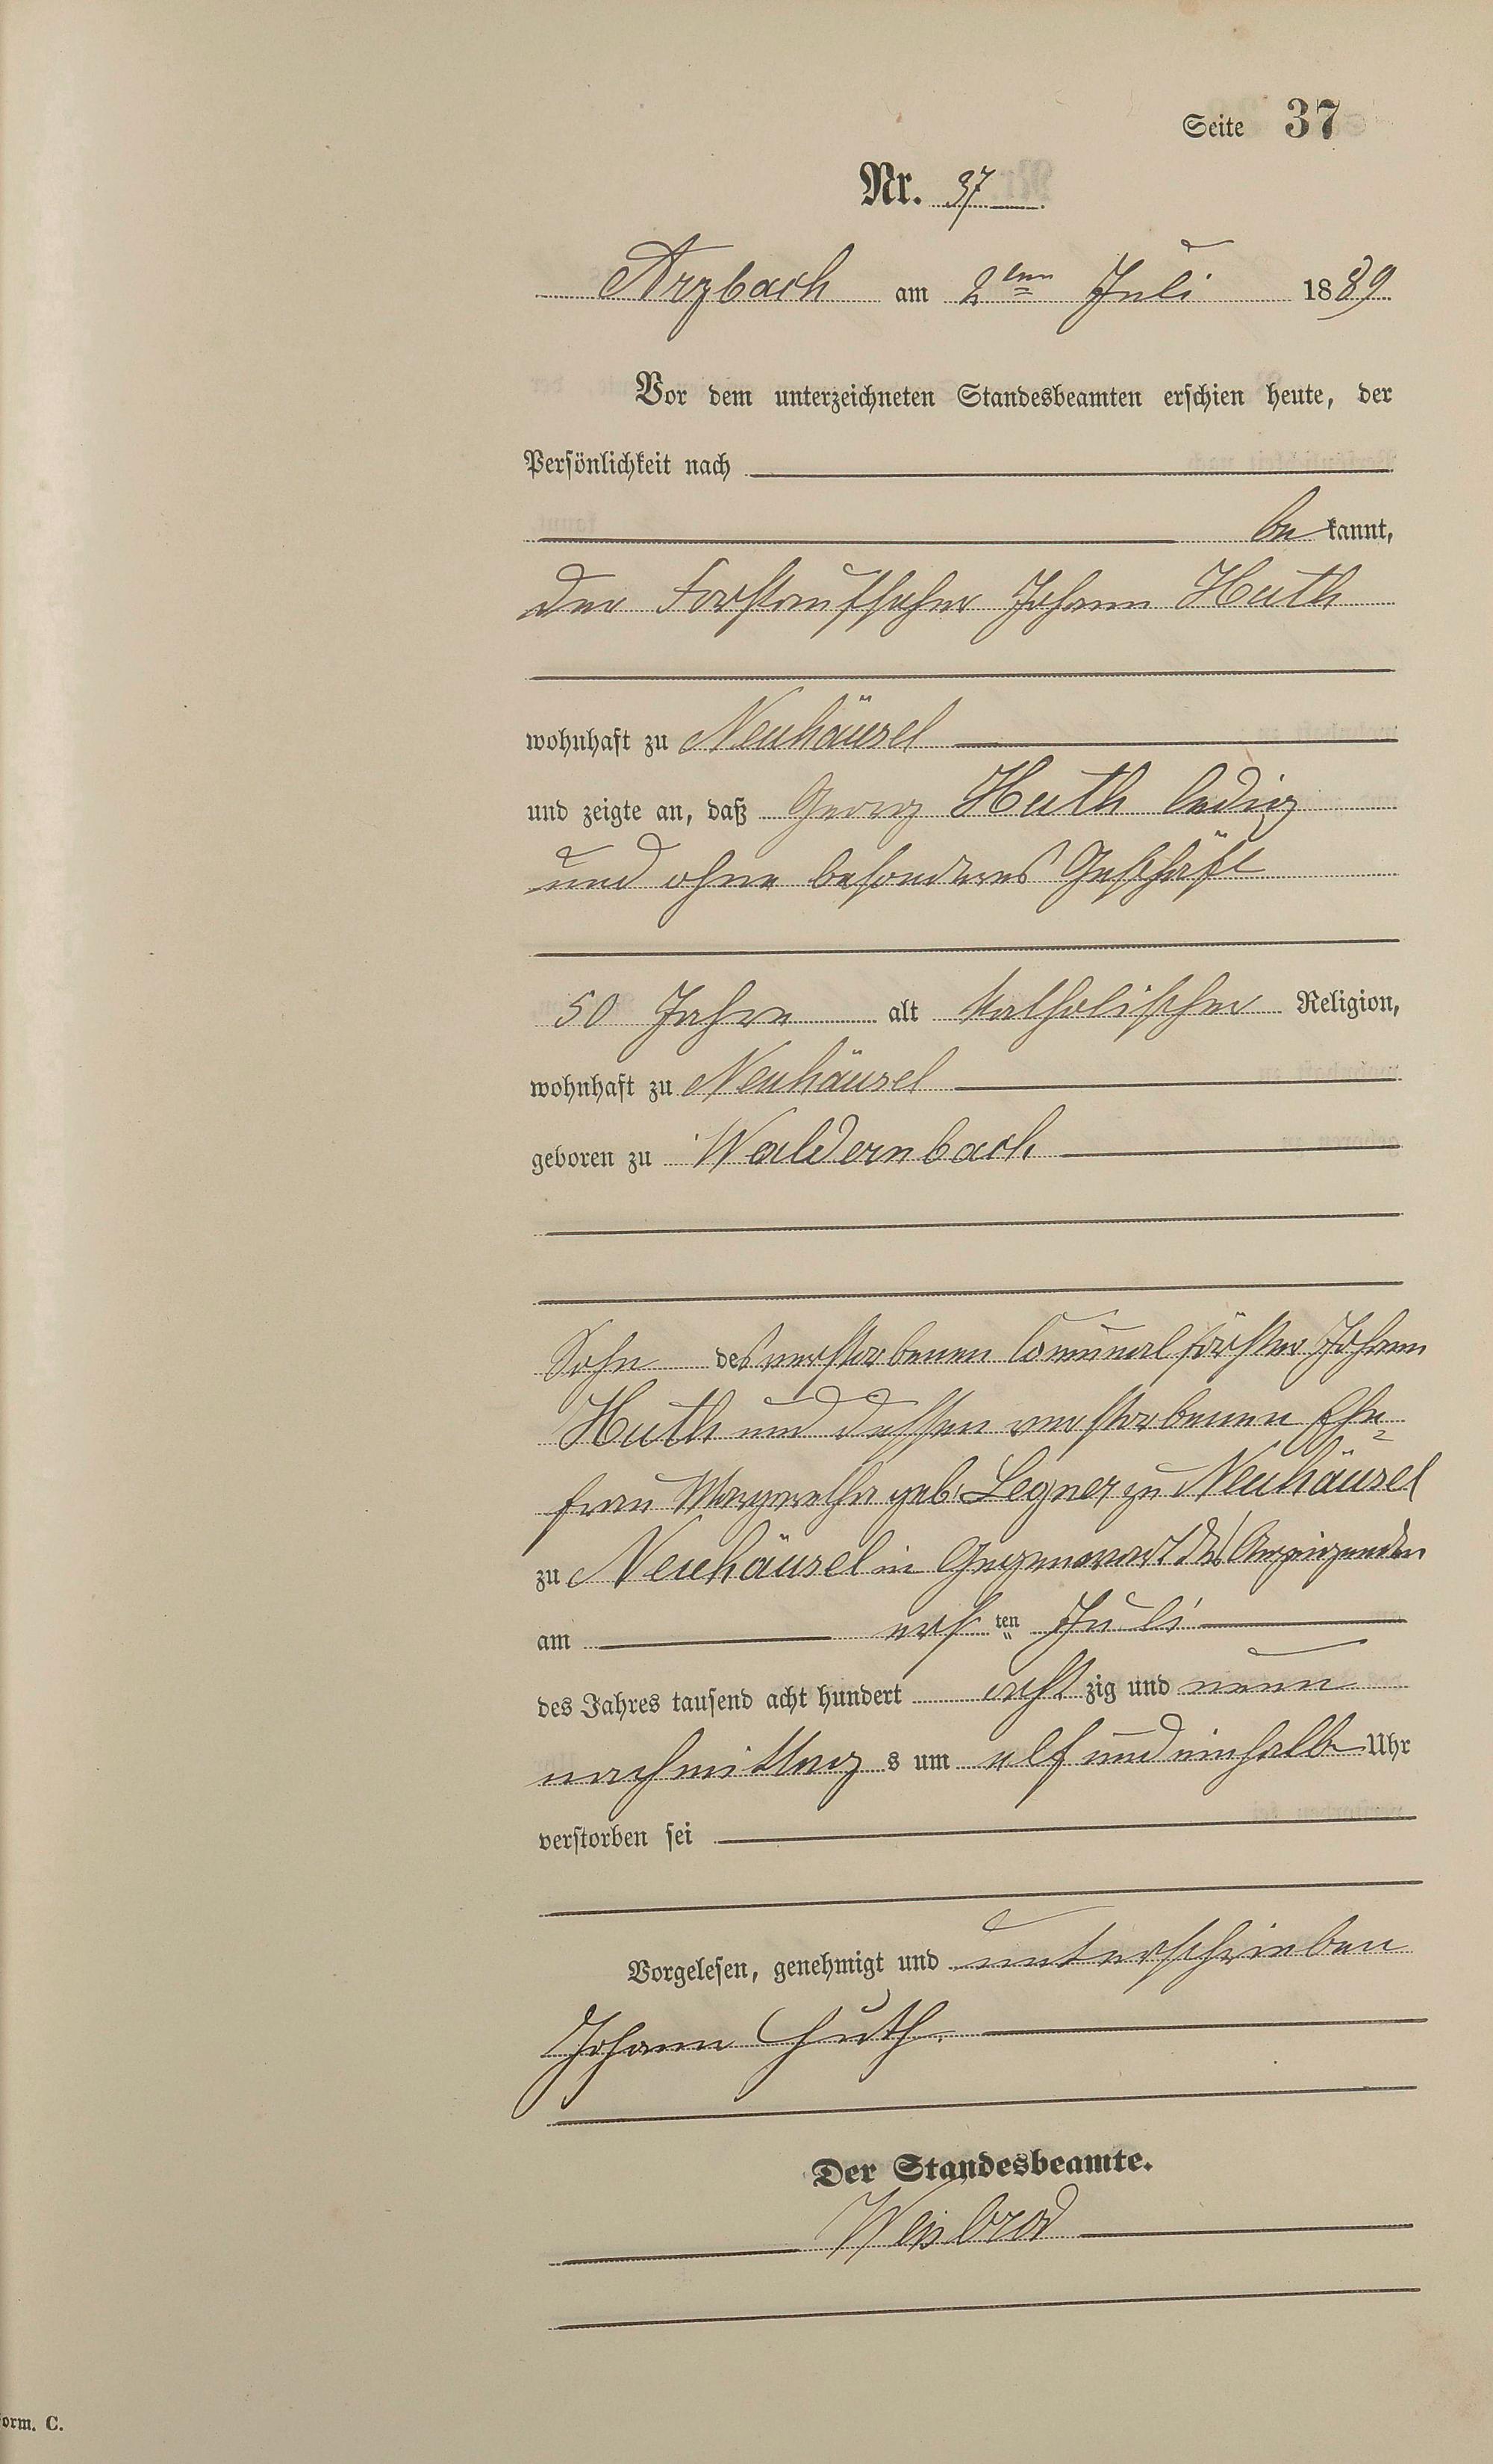 Seite 37
Nr. 37
Arzbach am 2ten Juli 1889
Vor dem unterzeichneten Standesbeamten erschien heute, der
Persönlichkeit nach
be kannt,
der Forstaufseher Johann Huth
wohnhaft zu Neuhäusel
und zeigte an, daß Georg Huth ledig
und ohne besonderes Geschäft
50 Jahre alt katholischer Religion,
wohnhaft zu Neuhäusel
geboren zu Waldernbach
Sohn des verstorbenen Communalförster Johann
Huth und dessen verstorbenen Ehe-
frau Margaretha geb. Legner zu Neuhäusel
zu Neuhäusel in Gegenwart des Anzeigenden
am ersten Juli
des Jahres tausend acht hundert acht zig und neun
nachmittag s um elf und einhalb Uhr
verstorben sei
Vorgelesen, genehmigt und unterschrieben
Johann Huth.
Der Standesbeamte.
Weisbrod
orm. C.